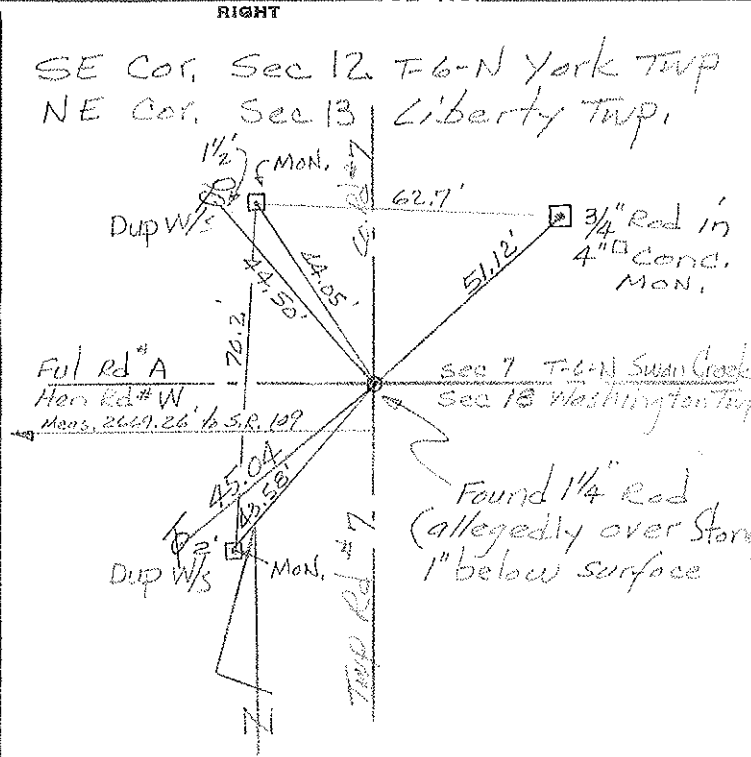 RIGHT
SE Cor. Sec 12 T-6-N York Twp
NE Cor. Sec 13 Liberty Twp.
1½'
MON.
Dup W/s
62.7'
3/4" Rod in
4"□ Conc.
MON.
Rd #7
44.50'
44.05'
51.12'
70.2'
Ful Rd #A
Hen Rd #W
Meas. 2669.26' to S.R. 109
Sec 7 T-6-N Swan Creek
Sec 18 Washington Twp
45.04
43.58'
2'
Dup W/s
MON.
Twp Rd #7
Found 1¼" Rod
(allegedly over Stone
1" below surface